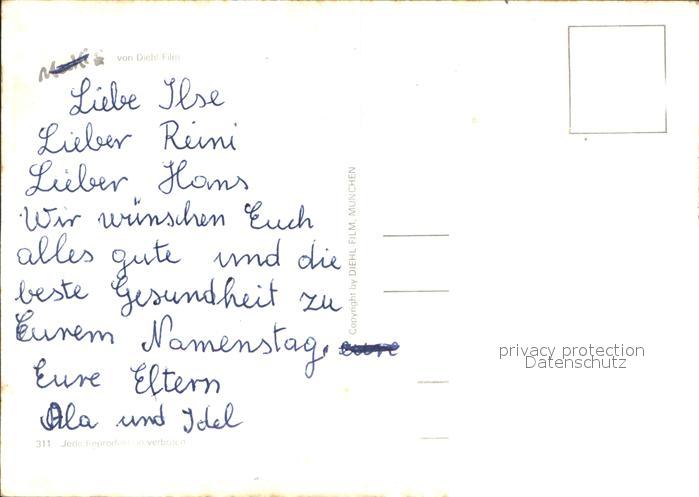 von Diehl Film
Liebe Ilse
Lieber Reini
Lieber Hans
Wir wünschen Euch
alles gute und die
beste Gesundheit zu
Eurem Namenstag.
Eure Eltern
Ala und Idel
311 Jede Reproduktion verboten
Copyright by DIEHL FILM, MÜNCHEN
privacy protection
Datenschutz